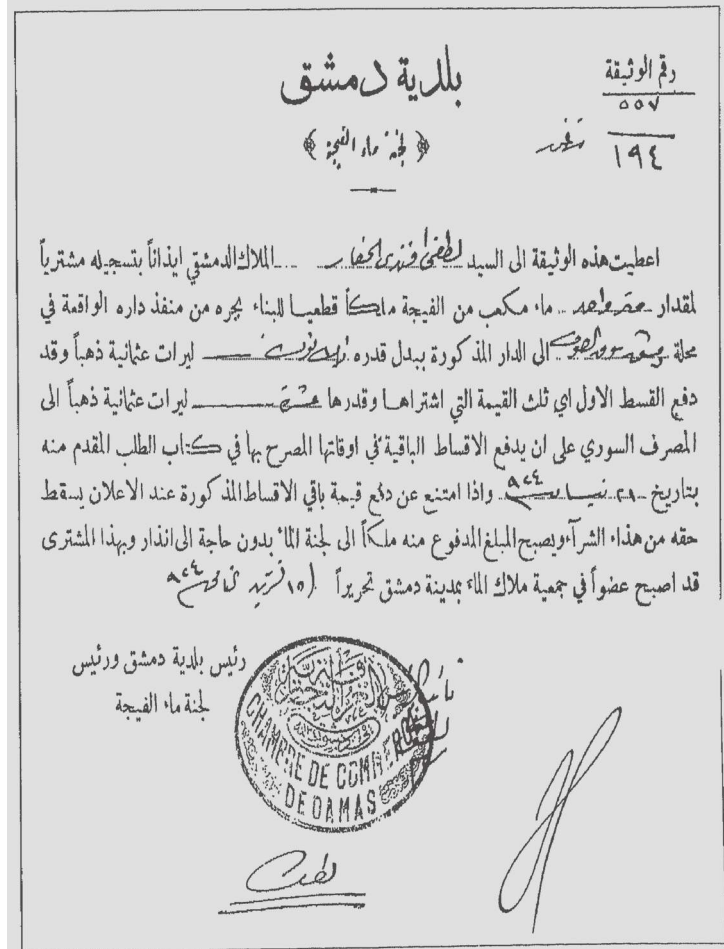 بلدية دمشق
رقم الوثيقة
٥٥٧
١٩٤
﴿ لجنة ماء الفيجة ﴾
اعطيت هذه الوثيقة الى السيد لطفي افندي الحفار الملاك الدمشقي ايذاناً بتسجيله مشترياً
لمقدار متر واحد ماء مكعب من الفيجة ملكاً قطعيا للبناء يجره من منفذ داره الواقعة في
محلة الى الدار المذكورة ببدل قدره ليرات عثمانية ذهباً وقد
دفع القسط الاول اي ثلث القيمة التي اشتراها وقدرها ليرات عثمانية ذهباً الى
المصرف السوري على ان يدفع الاقساط الباقية في اوقاتها المصرح بها في كتاب الطلب المقدم منه
بتاريخ نيسان ٩٢٤ واذا امتنع عن دفع قيمة باقي الاقساط المذكورة عند الاعلان يسقط
حقه من هذاء الشرآء ويصبح المبلغ المدفوع منه ملكاً الى لجنة الماء بدون حاجة الى انذار وبهذا المشترى
قد اصبح عضواً في جمعية ملاك الماء بمدينة دمشق تحريراً ١٥ تشرين ٩٢٤
رئيس بلدية دمشق ورئيس
لجنة ماء الفيجة
CHAMBRE DE COMMERCE
DE DAMAS